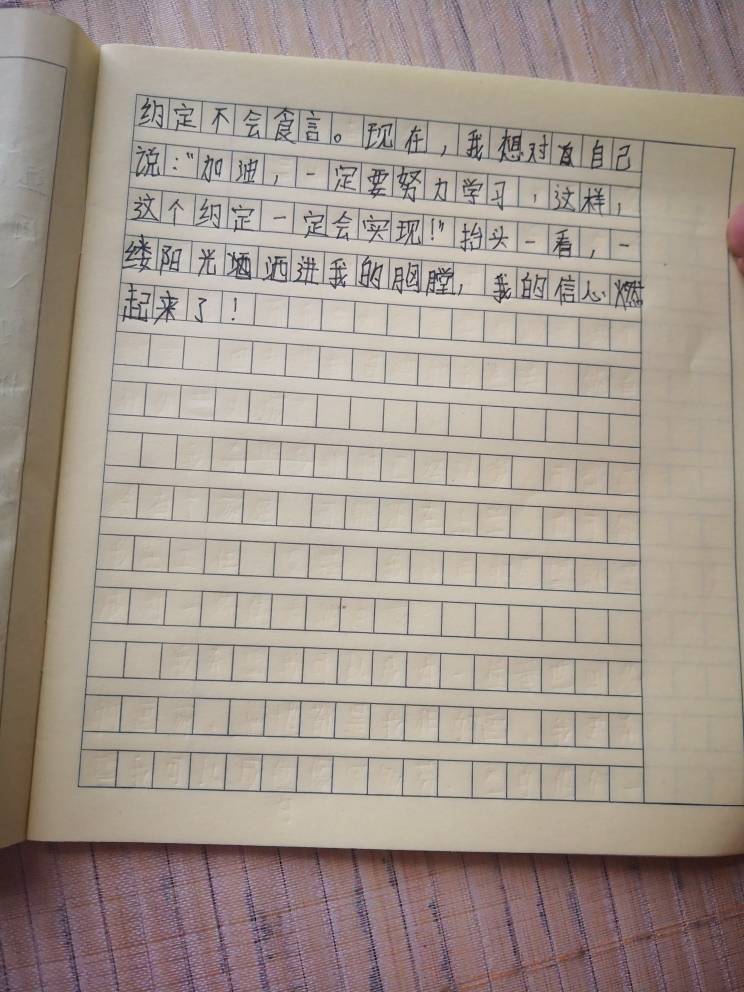 约定不会食言。现在，我想对自己
说："加油，一定要努力学习，这样，
这个约定一定会实现！"抬头一看，一
缕阳光洒进我的胸膛，我的信心燃
起来了！